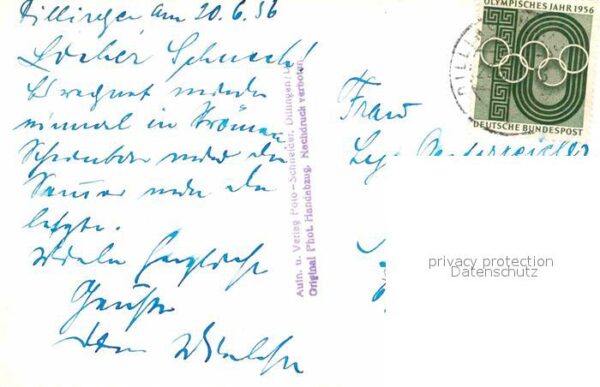 Dillingen am 20.6.56
Lieber Schneck!
Es regnet wieder
einmal in Strömen
Scheinbar wird der
Sommer wie der
letzte.
Viele herzliche
Grüße
Aufn. u. Verlag Foto-Schneider, Dillingen/
Original Phot. Handabzug. Nachdruck verboten
OLYMPISCHES JAHR 1956
10
DEUTSCHE BUNDESPOST
DILLI
Frau
privacy protection
Datenschutz